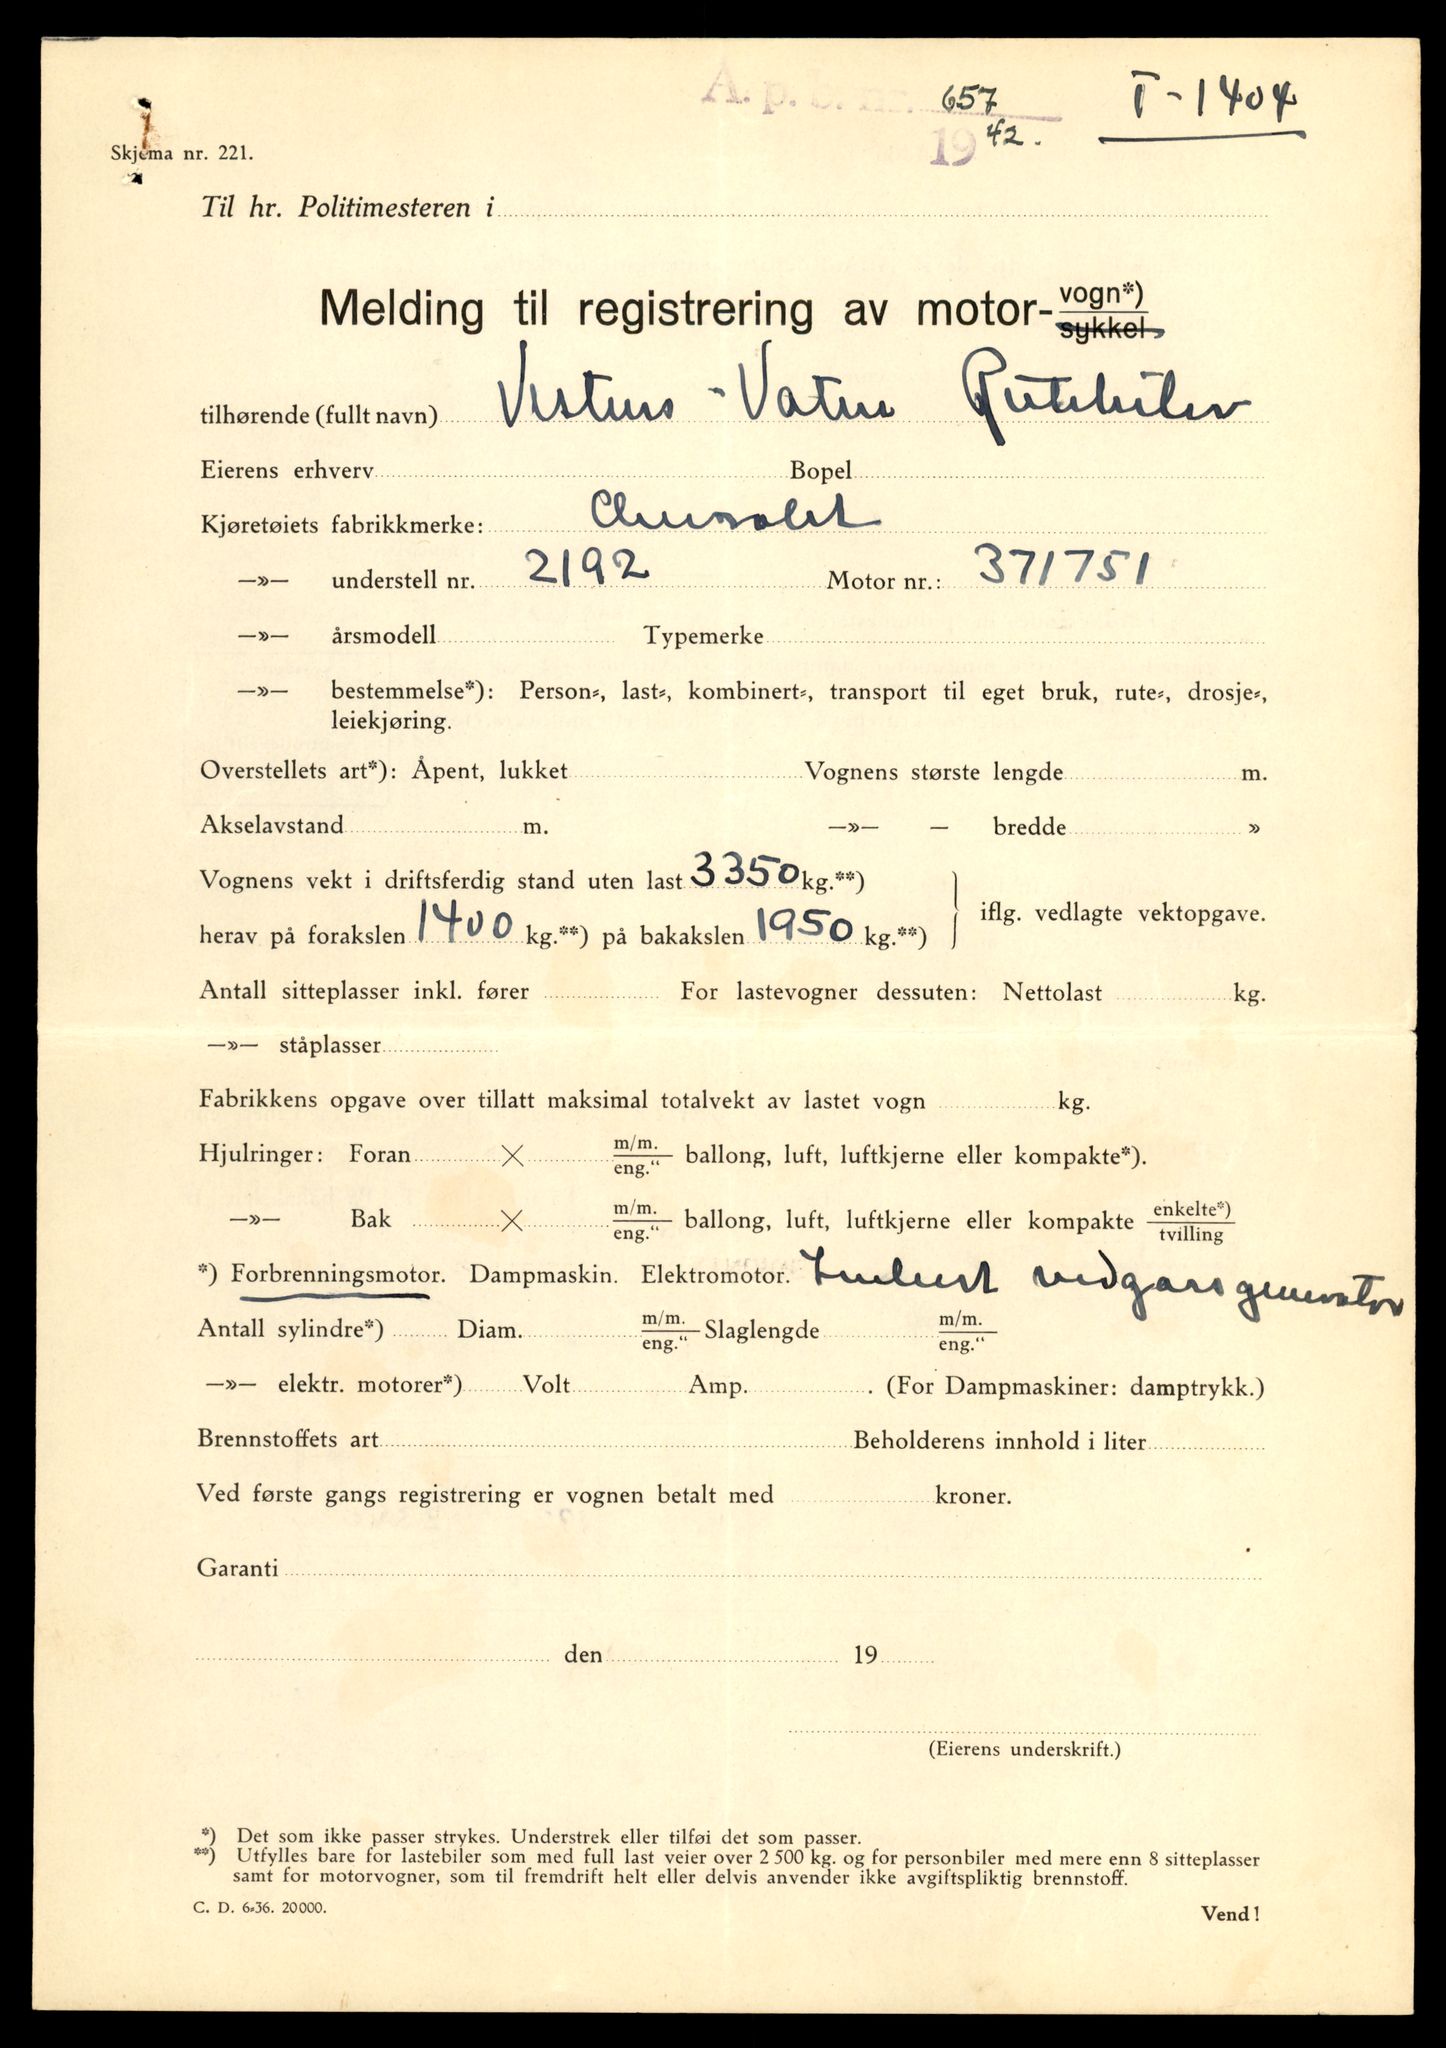 A. p. b. nr. 657
1942.
T-1404
Skjema nr. 221.
Til hr. Politimesteren i
Melding til registrering av motor-vogn*)
sykkel
tilhørende (fullt navn) Vestnes - Vatne Rutebiler
Eierens erhverv Bopel
Kjøretøiets fabrikkmerke: Chevrolet
—»— understell nr. 2192 Motor nr.: 371751
—»— årsmodell Typemerke
—»— bestemmelse*): Person-, last-, kombinert-, transport til eget bruk, rute-, drosje-,
leiekjøring.
Overstellets art*): Åpent, lukket Vognens største lengde m.
Akselavstand m. —»— — bredde »
Vognens vekt i driftsferdig stand uten last 3350 kg.**)
herav på forakslen 1400 kg.**) på bakakslen 1950 kg.**)
iflg. vedlagte vektopgave.
Antall sitteplasser inkl. fører For lastevogner dessuten: Nettolast kg.
—»— ståplasser
Fabrikkens opgave over tillatt maksimal totalvekt av lastet vogn kg.
Hjulringer: Foran × m/m. eng.“ ballong, luft, luftkjerne eller kompakte*).
—»— Bak × m/m. eng.“ ballong, luft, luftkjerne eller kompakte enkelte*) tvilling
*) Forbrenningsmotor. Dampmaskin. Elektromotor. Imbert vedgassgenerator
Antall sylindre*) Diam. m/m. eng.“ Slaglengde m/m. eng.“
—»— elektr. motorer*) Volt Amp. . (For Dampmaskiner: damptrykk.)
Brennstoffets art Beholderens innhold i liter
Ved første gangs registrering er vognen betalt med kroner.
Garanti
den 19
(Eierens underskrift.)
*) Det som ikke passer strykes. Understrek eller tilføi det som passer.
**) Utfylles bare for lastebiler som med full last veier over 2 500 kg. og for personbiler med mere enn 8 sitteplasser
samt for motorvogner, som til fremdrift helt eller delvis anvender ikke avgiftspliktig brennstoff.
C. D. 6-36. 20000.
Vend!